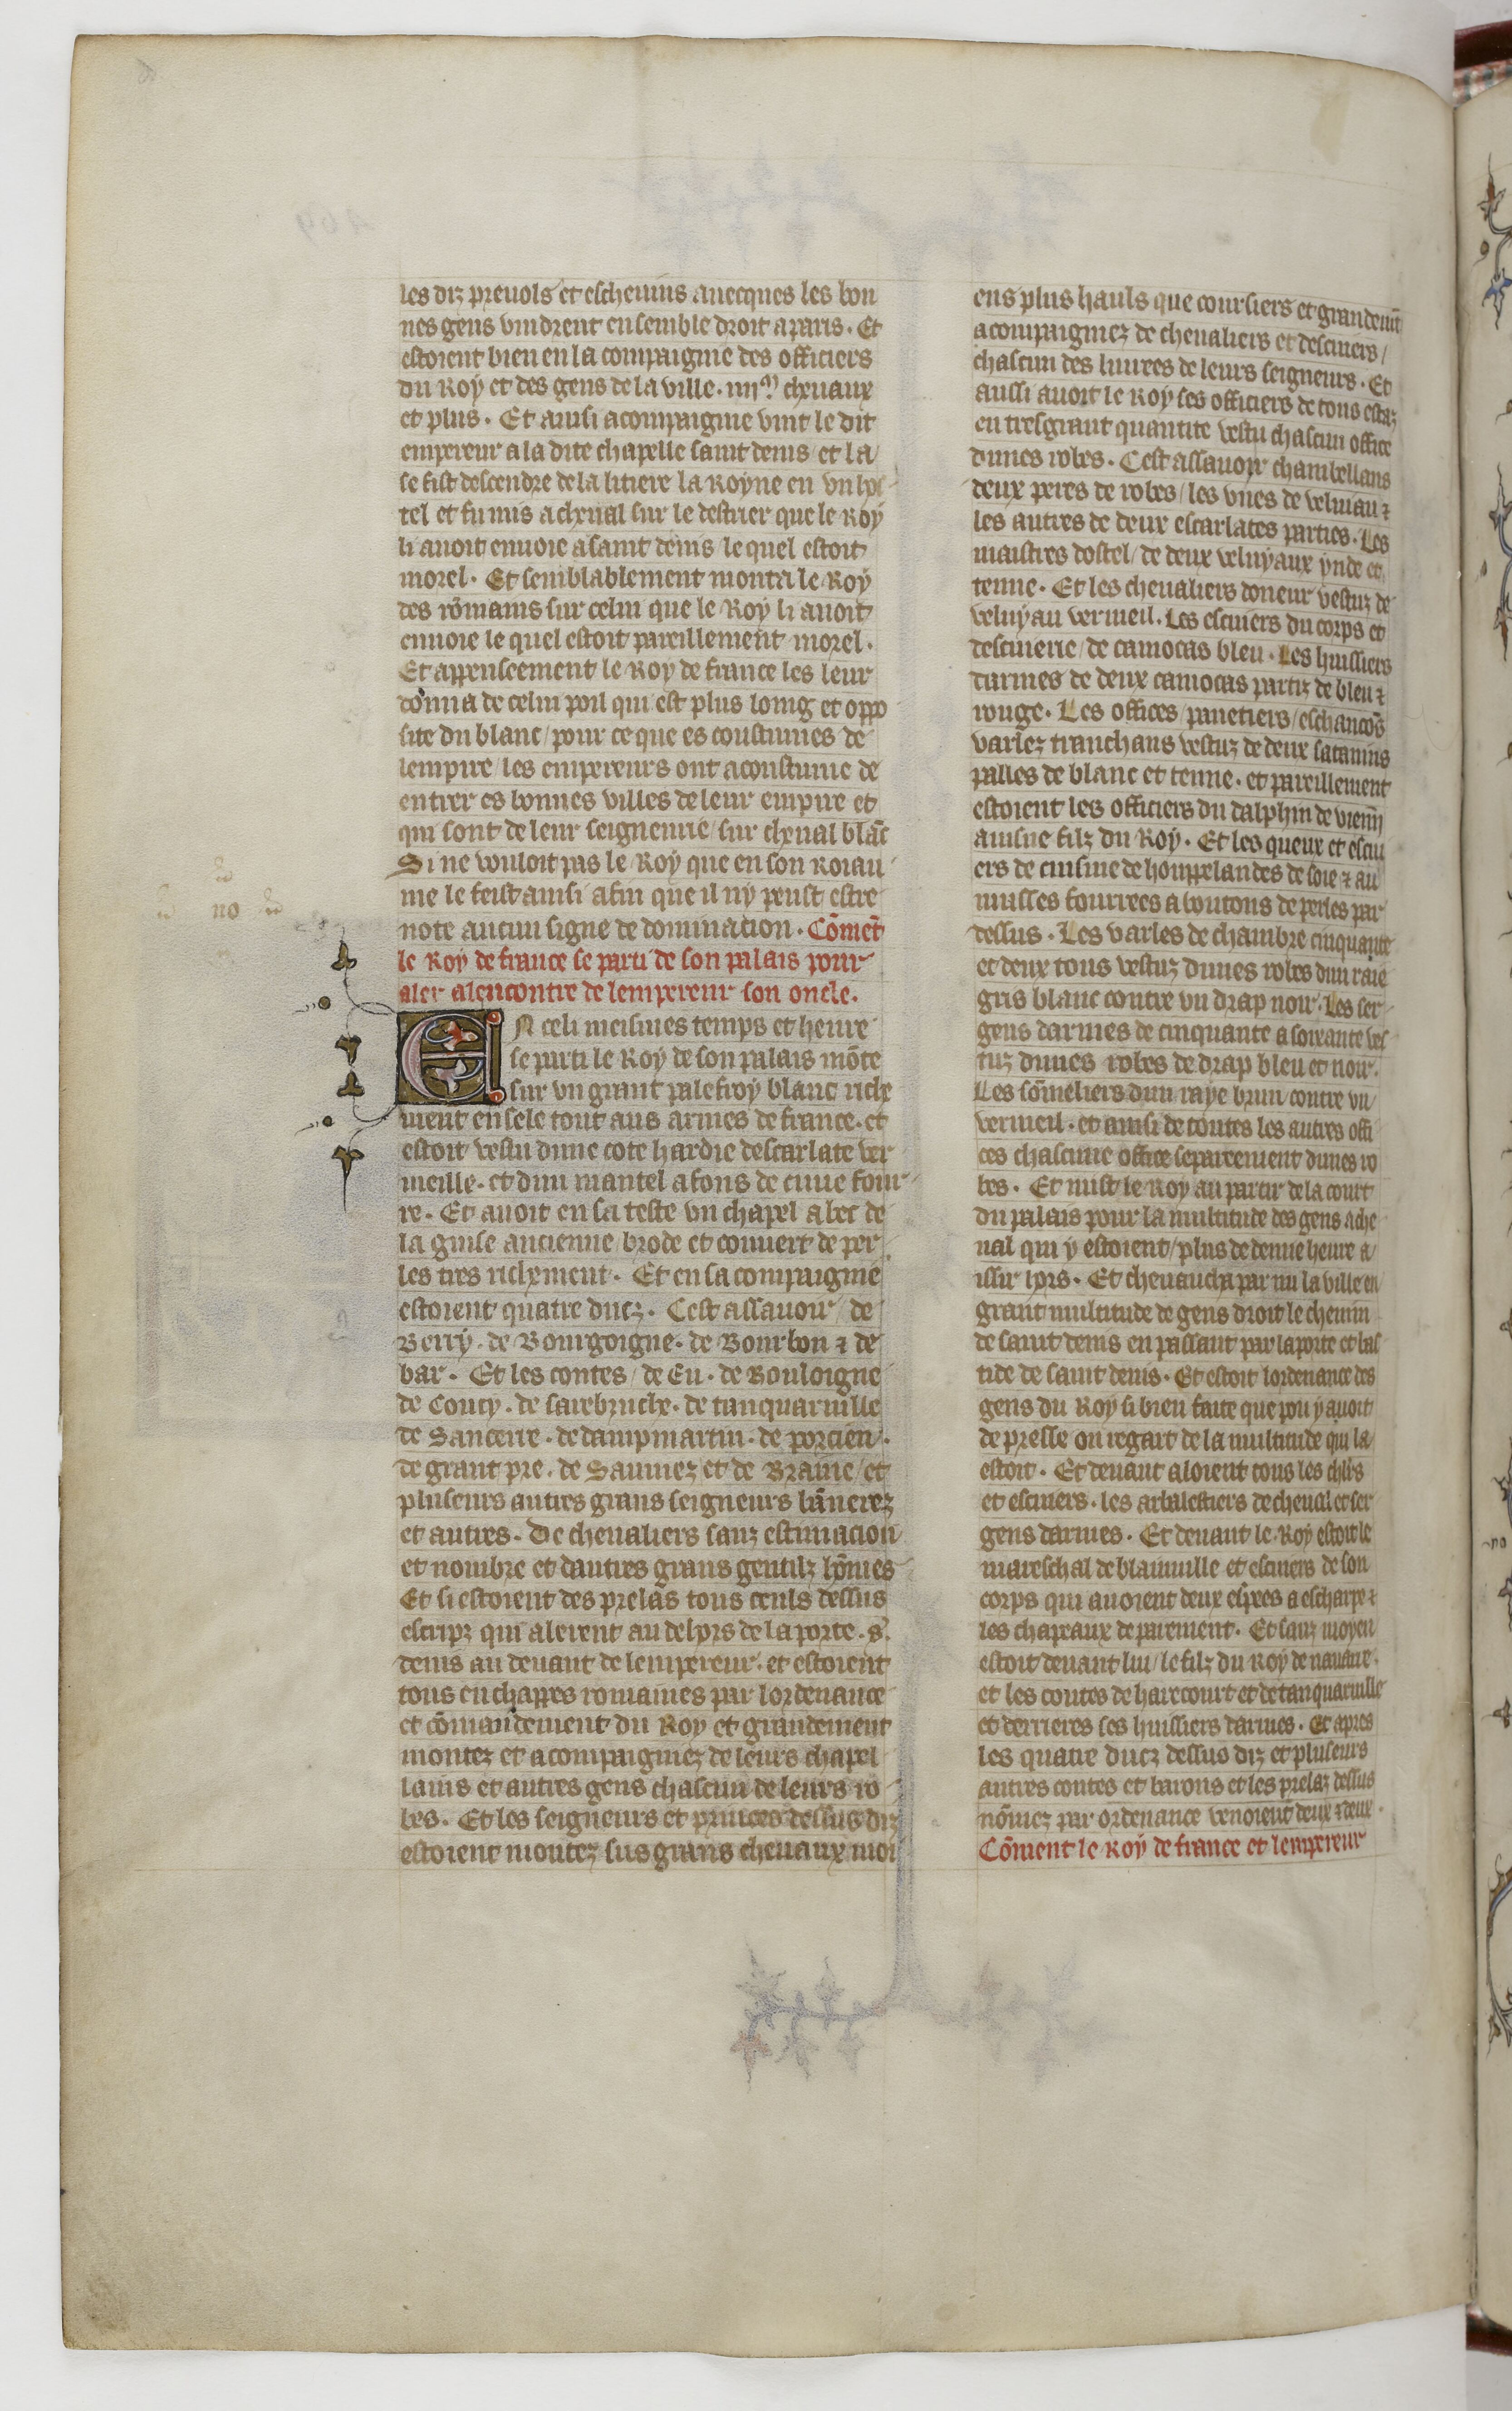 les diz preuols et escheuins auecques les bon
nes gens vindrent ensemble droit a paris. Et
estoient bien en la compaignie des officiers
du Roy et des gens de la ville. iiij.m cheuaux
et plus. Et ainsi acompaignie vint le dit
empereur a la dite chapelle saint denis / et la
se fist descendre de la litiere la Royne en vn hos
tel et fu mis a cheual sur le destrier que le Roy
li auoit enuoie a saint denis / le quel estoit
morel. Et semblablement monta le Roy
des rōmains sur celui que le Roy li auoit
enuoie le quel estoit pareillement morel.
Et appenseement le Roy de france les leur
donna de celui poil qui est plus loing et oppo
site du blanc / pour ce que es coustumes de
lempire / les empereurs ont acoustume de
entrer es bonnes villes de leur empire et
qui sont de leur seigneurie / sur cheual blāc
Si ne vouloit pas le Roy que en son Roiau
me le feist ainsi afin que il ny peust estre
note aucun signe de dominacion. Cōmēt
le Roy de france se parti de son palais pour
aler alencontre de lempereur son oncle.
En celi meismes temps et heure
se parti le Roy de son palais mōte
sur vn grant palefroy blanc riche
ment ensele tout aus armes de france. et
estoit vestu dune cote hardie descarlate ver
meille. et dun mantel a fons de cuue four
re. Et auoit en sa teste vn chapel a bec de
la guise ancienne / brode et couuert de per
les tres richement. Et en sa compaignie
estoient quatre ducz. Cest assauoir / de
Berry. de Bourgoigne. de Bourbon ⁊ de
bar. Et les contes / de Eu. de Bouloigne
de Coucy. de sarebruche. de tanquaruille
de Sancerre. de dampmartin. de porcien.
de grant pre. de Saumez et de Braine / et
pluseurs autres grans seigneurs bānerez
et autres. De cheualiers sanz estimacion
et nombre et dautres grans gentilz hōmes
Et si estoient des prelas tous ceuls dessus
escripz qui alerent au dehors de la porte .s.
denis au deuant de lempereur. et estoient
tous en chappes romaines par lordenance
et cōmandement du Roy et grandement
montez et acompaigniez de leurs chapel
lains et autres gens chascun de leurs ro
bes. Et les seigneurs et princes dessus diz
estoient montez sus grans cheuaux moi
no
ens plus hauls que coursiers et grandemēt
acompaigniez de cheualiers et descuiers /
chascun des liurees de leurs seigneurs. Et
aussi auoit le Roy ses officiers de tous estaz
en tresgrant quantite vestu chascun office
dunes robes. Cest assauoir chambellans
deux peres de robes / les vnes de veluiau ⁊
les autres de deux escarlates parties. Les
maistres dostel / de deux veluyaux ynde et
tenne. Et les cheualiers doneur vestuz de
veluyau vermeil. Les escuiers du corps et
descuierie / de camocas bleu. Les huissiers
darmes de deux camocas partiz de bleu ⁊
rouge. Les offices / panetiers / eschancōs
varlez tranchans vestuz de deux satanins
palles de blanc et tenne. et pareillement
estoient les officiers du dalphin de viennē
ainsne filz du Roy. Et les queux et escui
ers de cuisine de houppelandes de soie ⁊ au
musses fourrees a boutons de perles par
dessus. Les varles de chambre cinquante
et deux tous vestuz dunes robes dun raie
gris blanc contre vn drap noir. Les ser
gens darmes de cinquante a soixante ves
tuz dunes robes de drap bleu et noir.
Les sōmeliers dun raye brun contre vn
vermeil. et ainsi de toutes les autres offi
ces chascune office separeement dunes ro
bes. Et mist le Roy au partir de la court
du palais pour la multitude des gens a che
ual qui y estoient / plus de demie heure a
issir hors. Et cheuaucha par mi la ville en
grant multitude de gens droit le chemin
de saint denis en passant par la porte et bas
tide de saint denis. Et estoit lordenance des
gens du Roy si bien faite que pou y auoit
de presse ou regart de la multitude qui la
estoit. Et deuant aloient tous les chl'rs
et escuiers. les arbalestiers de cheual et ser
gens darmes. Et deuant le Roy estoit le
mareschal de blainuille et escuiers de son
corps qui auoient deux espees a escharpe ⁊
les chapeaux de parement. Et sanz moyen
estoit deuant lui / le filz du Roy de nauarre.
et les contes de harecourt et de tanquaruille
et derrieres ses huissiers darmes. Et apres
les quatre ducz dessus diz et pluseurs
autres contes et barons et les prelaz dessus
nōmez par ordenance venoient deux ⁊ deux.
Cōment le Roy de france et lempereur